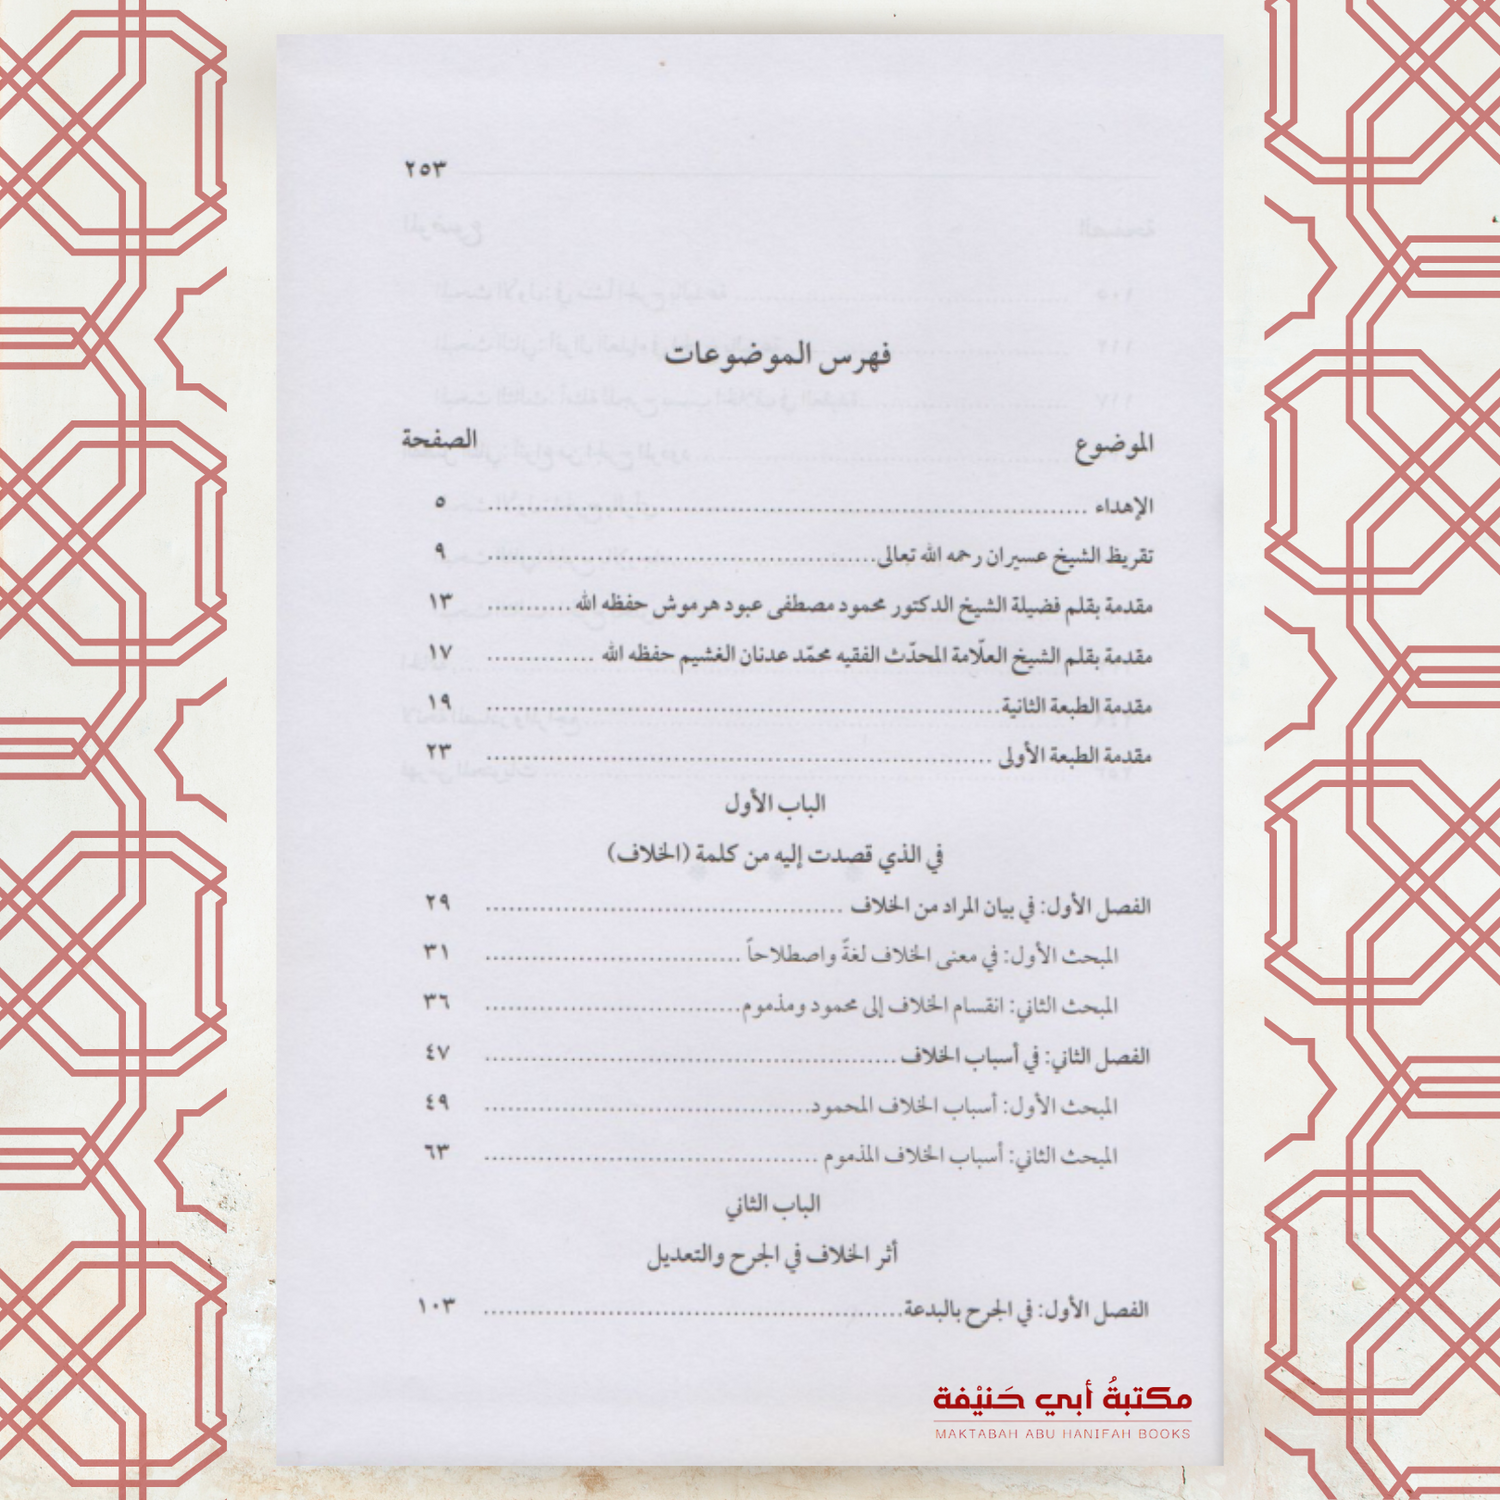 ٢٥٣
فهرس الموضوعات
الموضوع الصفحة
الإهداء ........ ٥
تقريظ الشيخ عسيران رحمه الله تعالى ........ ٩
مقدمة بقلم فضيلة الشيخ الدكتور محمود مصطفى عبود هرموش حفظه الله ........ ١٣
مقدمة بقلم الشيخ العلّامة المحدّث الفقيه محمّد عدنان الغشيم حفظه الله ........ ١٧
مقدمة الطبعة الثانية ........ ١٩
مقدمة الطبعة الأولى ........ ٢٣
الباب الأول
في الذي قصدت إليه من كلمة (الخلاف)
الفصل الأول: في بيان المراد من الخلاف ........ ٢٩
المبحث الأول: في معنى الخلاف لغةً واصطلاحاً ........ ٣١
المبحث الثاني: انقسام الخلاف إلى محمود ومذموم ........ ٣٦
الفصل الثاني: في أسباب الخلاف ........ ٤٧
المبحث الأول: أسباب الخلاف المحمود ........ ٤٩
المبحث الثاني: أسباب الخلاف المذموم ........ ٦٣
الباب الثاني
أثر الخلاف في الجرح والتعديل
الفصل الأول: في الجرح بالبدعة ........ ١٠٣
مكتبةُ أبي حَنيْفة
MAKTABAH ABU HANIFAH BOOKS